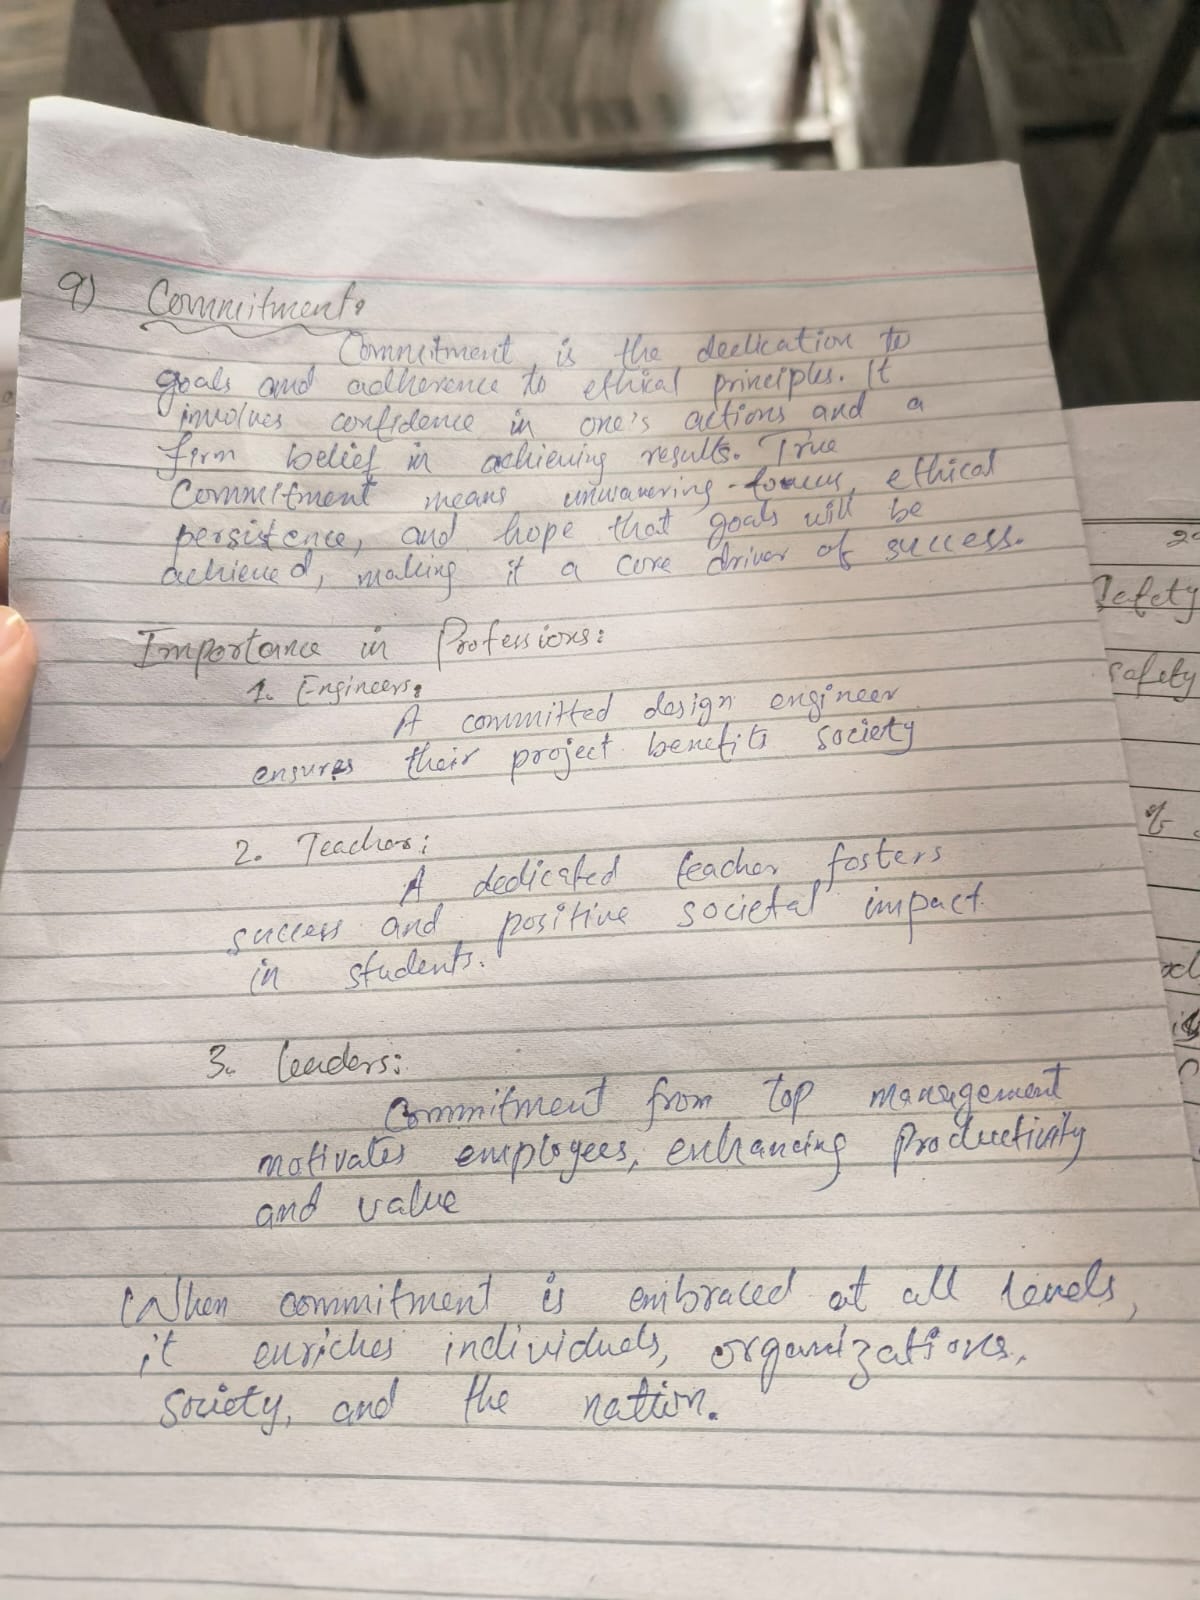 9) Commitment:
Commitment is the dedication to
goals and adherence to ethical principles. It
involves confidence in one's actions and a
firm belief in achieving results. True
Commitment means unwavering-focus, ethical
persistence, and hope that goals will be
achieved, making it a core driver of success.
Importance in Professions:
1. Engineers:
A committed design engineer
ensures their project benefits society
2. Teacher:
A dedicated teacher fosters
success and positive societal impact
in students.
3. Leaders:
Commitment from top management
motivates employees, enhancing Productivity
and value
When commitment is embraced at all levels,
it enriches individuals, organizations,
Society, and the nation.
Safety
safety
of